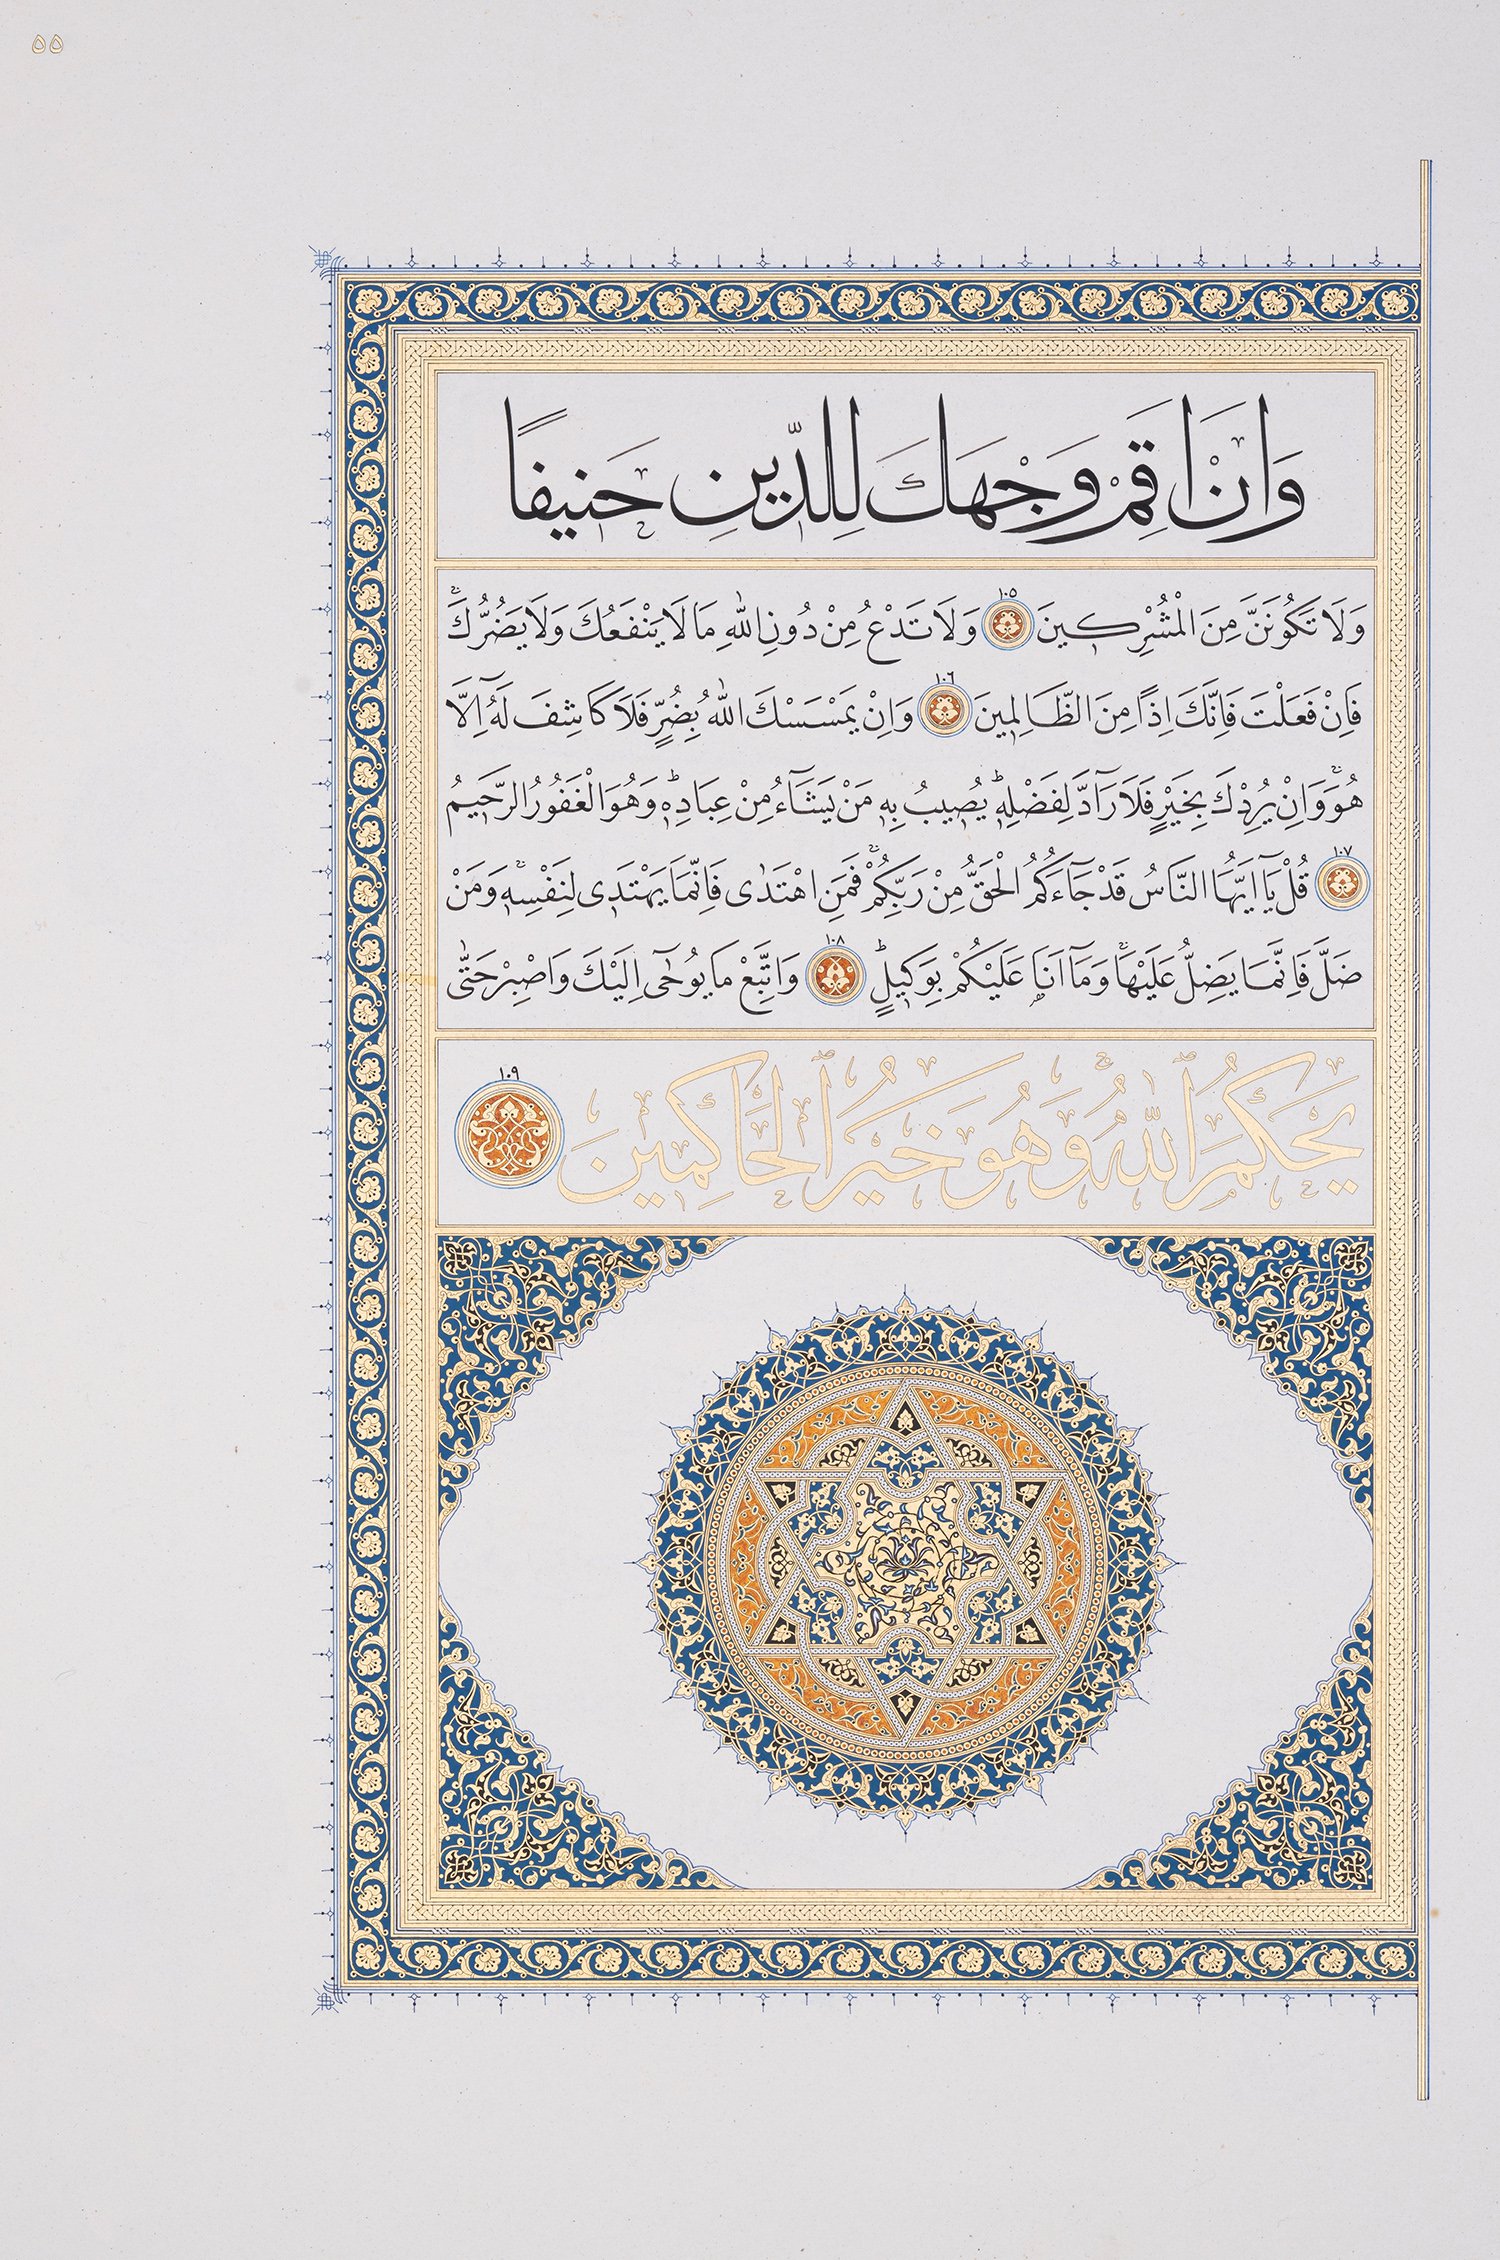 ٥٥
وَاَنْ اَقِمْ وَجْهَكَ لِلدّ۪ينِ حَن۪يفًا
وَلَا تَكُونَنَّ مِنَ الْمُشْرِك۪ينَ ١٠٥ وَلَا تَدْعُ مِنْ دُونِ اللّٰهِ مَا لَا يَنْفَعُكَ وَلَا يَضُرُّكَۚ
فَاِنْ فَعَلْتَ فَاِنَّكَ اِذًا مِنَ الظَّالِم۪ينَ ١٠٦ وَاِنْ يَمْسَسْكَ اللّٰهُ بِضُرٍّ فَلَا كَاشِفَ لَهُٓ اِلَّا
هُوَۚ وَاِنْ يُرِدْكَ بِخَيْرٍ فَلَا رَٓادَّ لِفَضْلِه۪ۜ يُص۪يبُ بِه۪ مَنْ يَشَٓاءُ مِنْ عِبَادِه۪ۜ وَهُوَ الْغَفُورُ الرَّح۪يمُ
١٠٧ قُلْ يَٓا اَيُّهَا النَّاسُ قَدْ جَٓاءَكُمُ الْحَقُّ مِنْ رَبِّكُمْۚ فَمَنِ اهْتَدٰى فَاِنَّمَا يَهْتَد۪ي لِنَفْسِه۪ۚ وَمَنْ
ضَلَّ فَاِنَّمَا يَضِلُّ عَلَيْهَاۚ وَمَٓا اَنَا۬ عَلَيْكُمْ بِوَك۪يلٍۜ ١٠٨ وَاتَّبِعْ مَا يُوحٰٓى اِلَيْكَ وَاصْبِرْ حَتّٰى
يَحْكُمَ اللّٰهُۚ وَهُوَ خَيْرُ الْحَاكِم۪ينَ ١٠٩